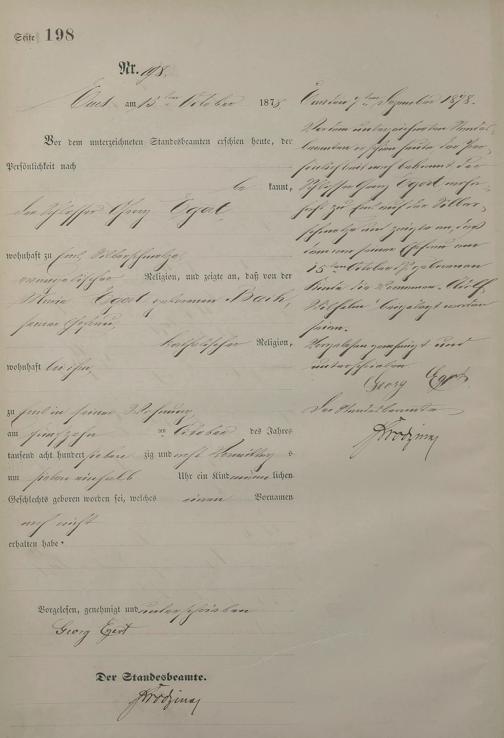 Seite 198
Nr. 198.
am 15 ten October 1878
Vor dem unterzeichneten Standesbeamten erschien heute, der
Persönlichkeit nach
be kannt,
der Schlosser Georg Egert,
wohnhaft zu
evangelischer Religion, und zeigte an, daß von der
Maria Egert geborenen Bach,
seiner Ehefrau,
katholischer Religion,
wohnhaft bei ihm,
zu in seiner Wohnung
am fünfzehn ten October des Jahres
tausend acht hundert sieben zig und acht Vormittag s
um sieben einhalb Uhr ein Kind männ lichen
Geschlechts geboren worden sei, welches einen Vornamen
noch nicht
erhalten habe.
Vorgelesen, genehmigt und unterschrieben
Georg Egert
Der Standesbeamte.
am 7 ten Dezember 1878.
Vor dem unterzeichneten Standes-
beamten erschien heute der Per-
sönlichkeit nach bekannt der
Schlosser Georg Egert wohn-
haft zu
und zeigte an, daß
dem von seiner Ehefrau am
15 ten October geborenen
Kinde die Vornamen Adolf
Wilhelm beigelegt worden
seien.
Vorgelesen genehmigt und
unterschrieben
Georg Egert
Der Standesbeamte